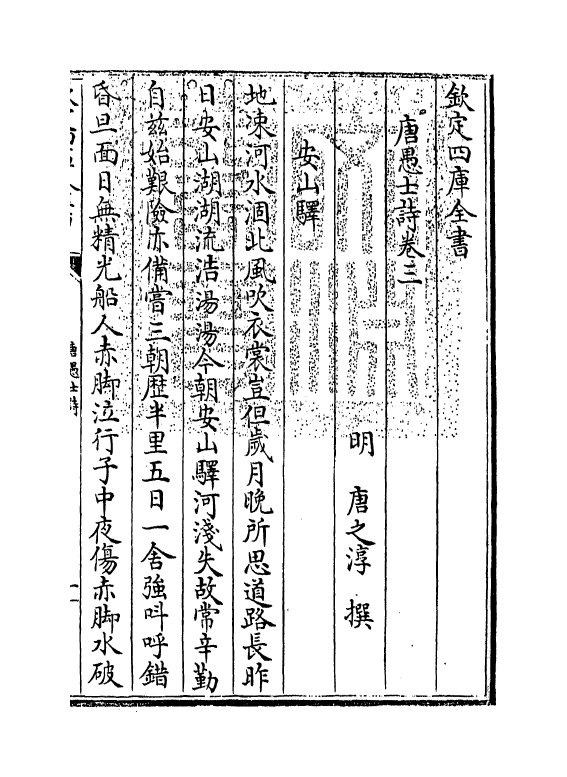 欽定四庫全書
唐愚士詩卷三
明 唐之淳 撰
安山驛
地凍河水涸北風吹衣裳豈但歲月晚所思道路長昨
日安山湖湖流浩湯湯今朝安山驛河淺失故常辛勤
自兹始艱險亦備嘗三朝歴半里五日一舍強呌呼錯
昏旦面目無精光船人赤脚泣行子中夜傷赤脚水破
唐愚士詩
一